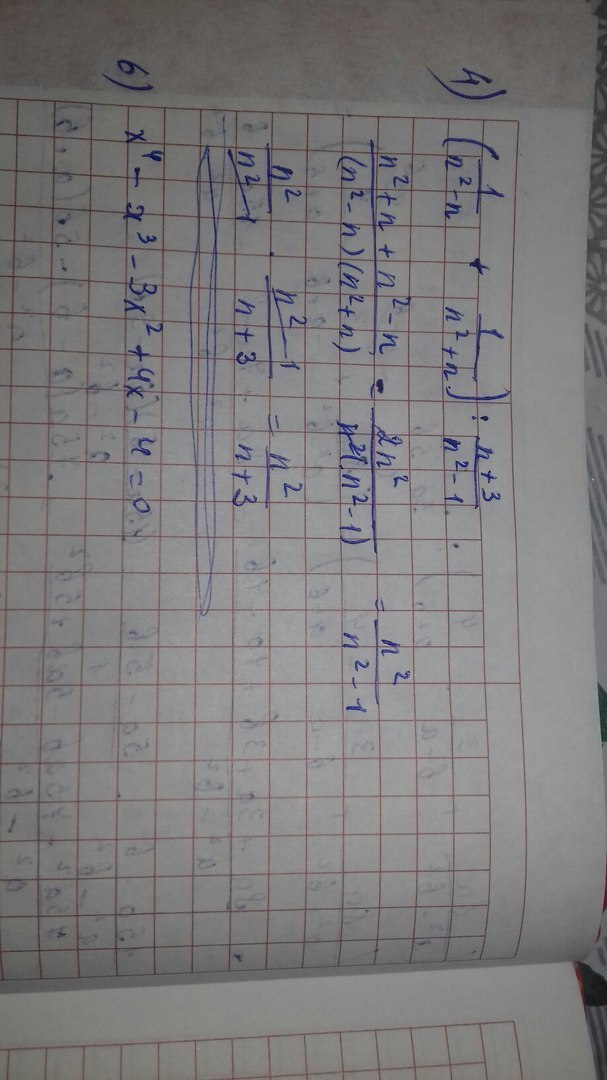 4) (1/(n² - n) + 1/(n² + n)) : (n + 3)/(n² - 1)
(n² + n + n² - n)/((n² - n)(n² + n)) = 2n²/(n²(n² - 1)) = n²/(n² - 1)
n²/(n² - 1) · (n² - 1)/(n + 3) = n²/(n + 3)
6) x⁴ - x³ - 3x² + 4x - 4 = 0